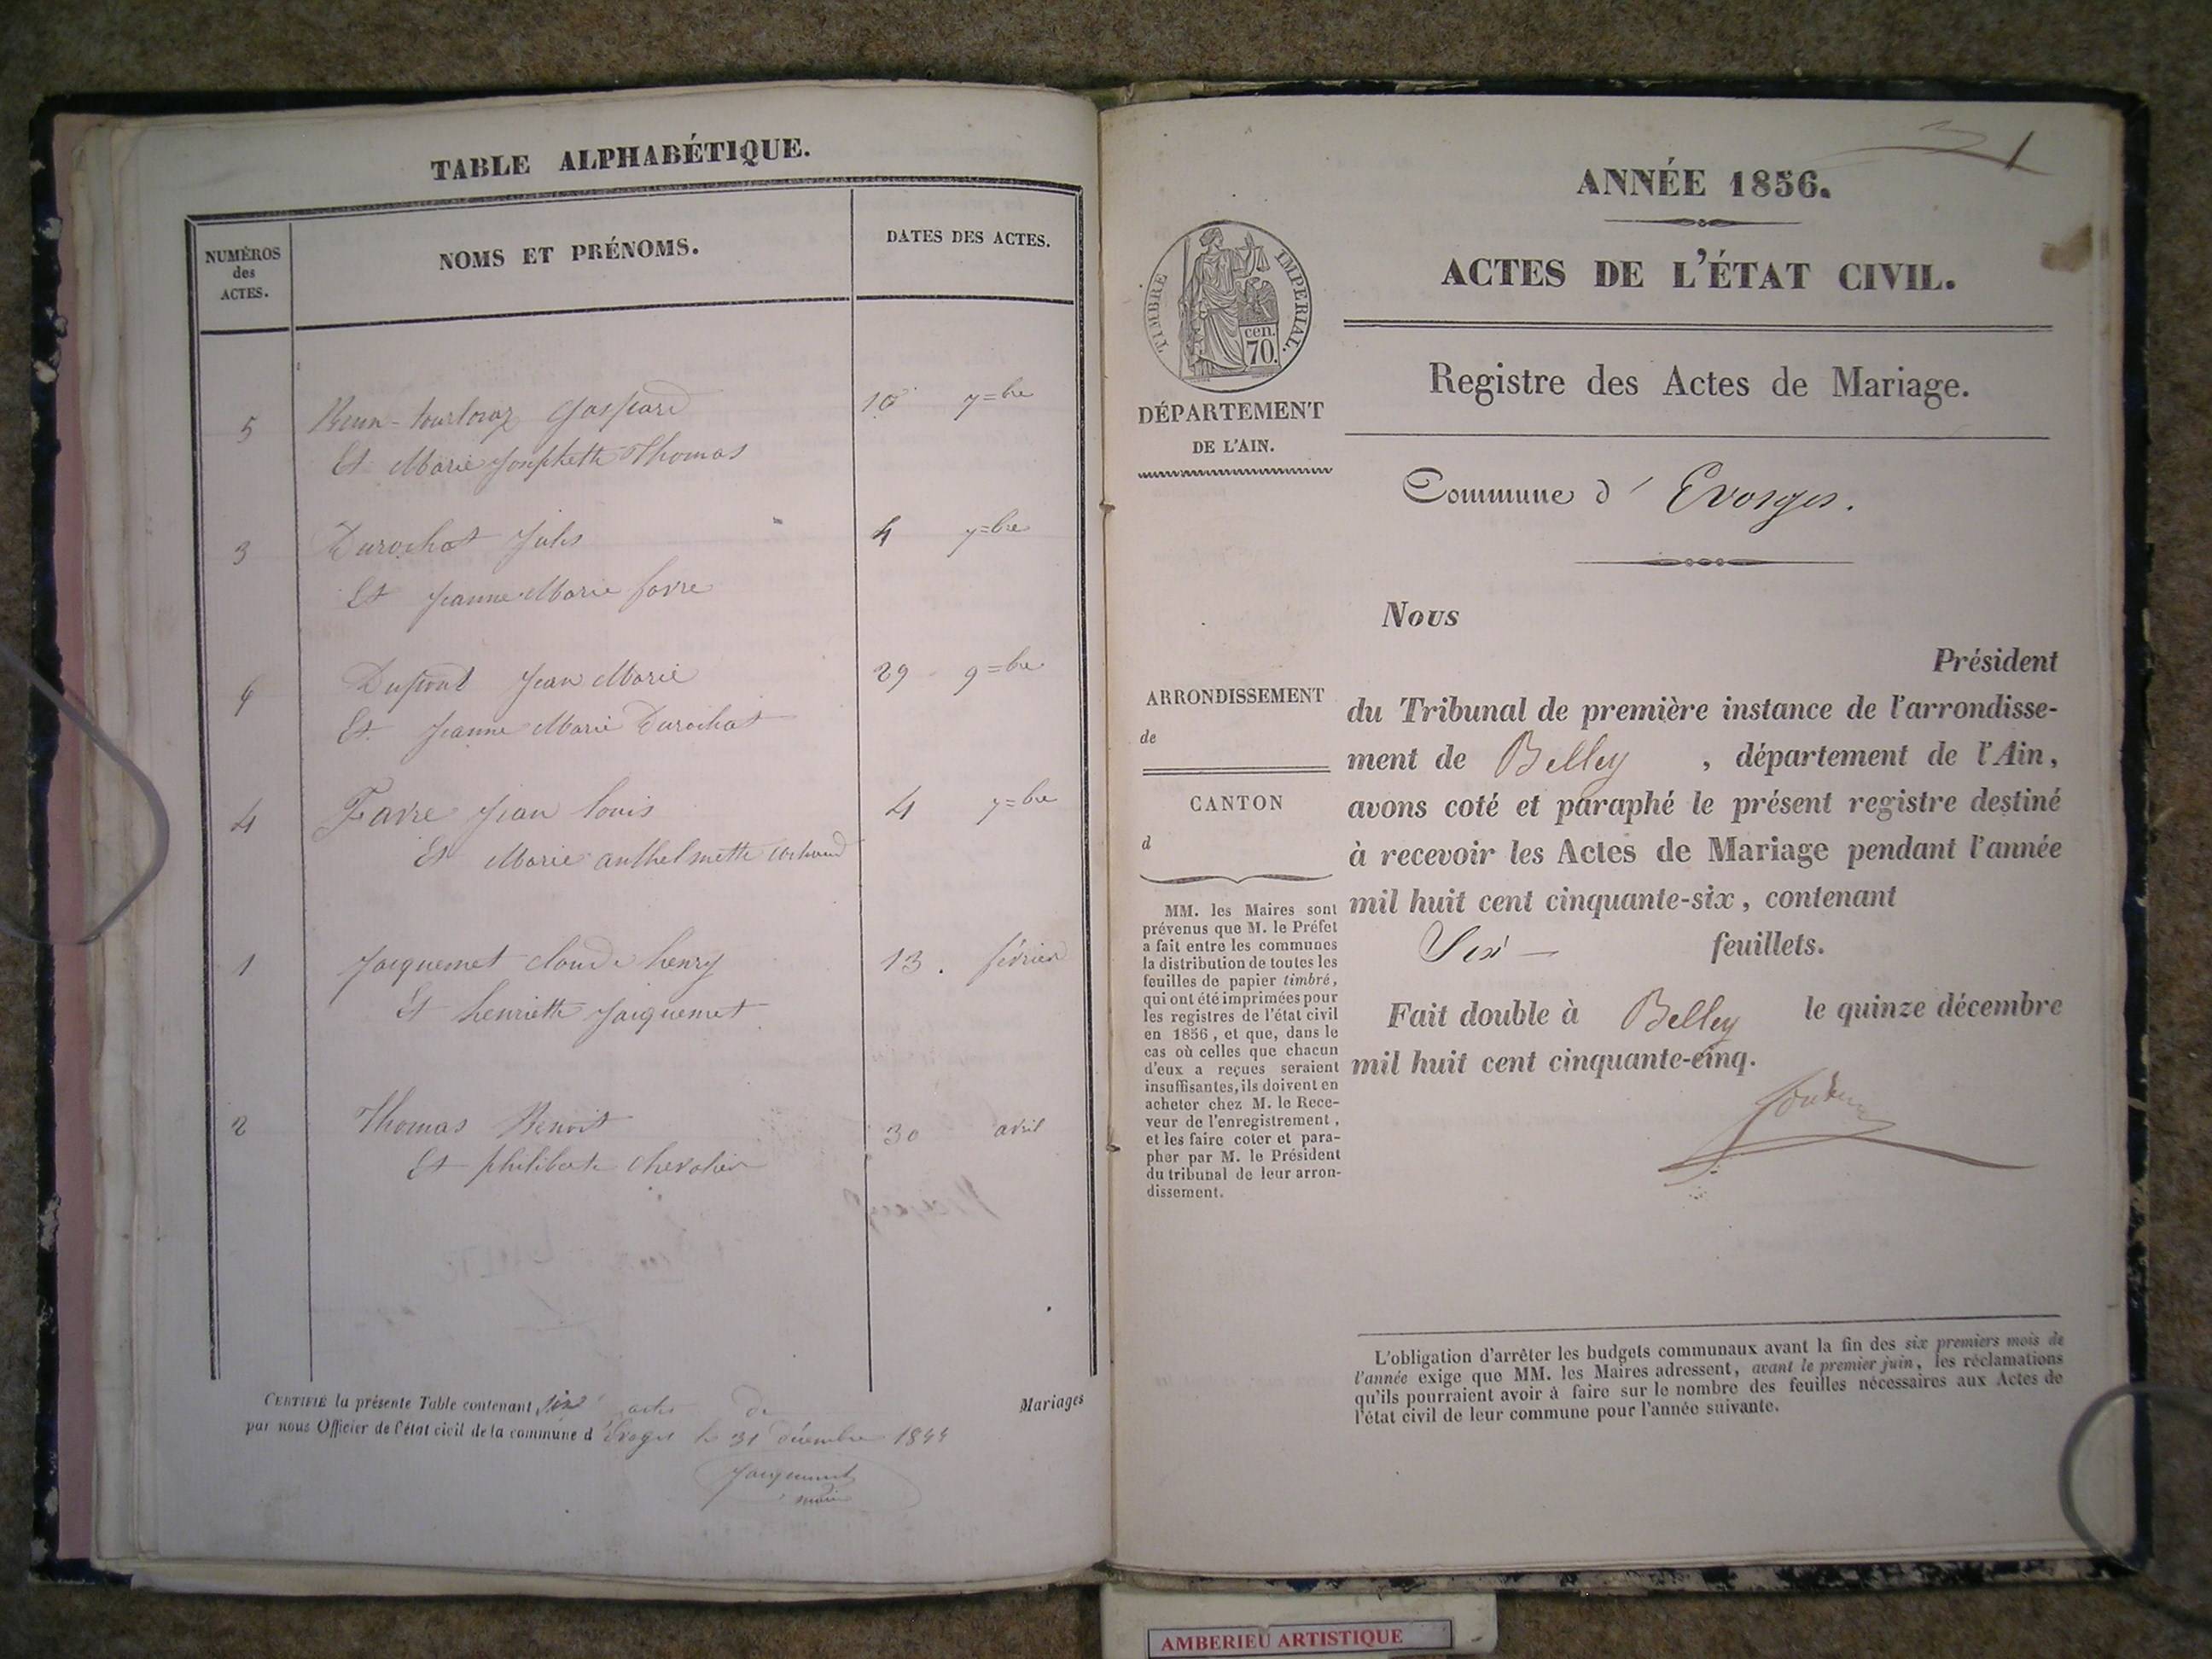 TABLE ALPHABÉTIQUE.
NUMÉROS
des
ACTES.
NOMS ET PRÉNOMS.
DATES DES ACTES.
5 Gaspard 10 7=bre
Et Marie Josephette Thomas
3 Durochat Jules 4 7=bre
Et Jeanne Marie favre
6 Dupont Jean Marie 29 9=bre
Et Jeanne Marie Durochat
4 Favre Jean Louis 4 7=bre
Et Marie anthelmette
1 Jacquemet Claude henry 13. février
Et henriette Jacquemet
2 Thomas Benoit 30 avril
Et philiberte chevalier
CERTIFIÉ la présente Table contenant six actes de Mariages
par nous Officier de l'état civil de la commune d'Evoges le 31 décembre
Jacquemet
maire
1
ANNÉE 1856.
ACTES DE L'ÉTAT CIVIL.
TIMBRE IMPERIAL.
cen.
70.
DÉPARTEMENT
DE L'AIN.
Registre des Actes de Mariage.
Commune d' Evosges.
Nous
Président
ARRONDISSEMENT
de
CANTON
d
du Tribunal de première instance de l'arrondisse-
ment de Belley , département de l'Ain,
avons coté et paraphé le présent registre destiné
à recevoir les Actes de Mariage pendant l'année
mil huit cent cinquante-six, contenant
Six — feuillets.
Fait double à Belley le quinze décembre
mil huit cent cinquante-cinq.
MM. les Maires sont
prévenus que M. le Préfet
a fait entre les communes
la distribution de toutes les
feuilles de papier timbré,
qui ont été imprimées pour
les registres de l'état civil
en 1856, et que, dans le
cas où celles que chacun
d'eux a reçues seraient
insuffisantes, ils doivent en
acheter chez M. le Rece-
veur de l'enregistrement,
et les faire coter et para-
pher par M. le Président
du tribunal de leur arron-
dissement.
L'obligation d'arrêter les budgets communaux avant la fin des six premiers mois de
l'année exige que MM. les Maires adressent, avant le premier juin, les réclamations
qu'ils pourraient avoir à faire sur le nombre des feuilles nécessaires aux Actes de
l'état civil de leur commune pour l'année suivante.
AMBERIEU ARTISTIQUE